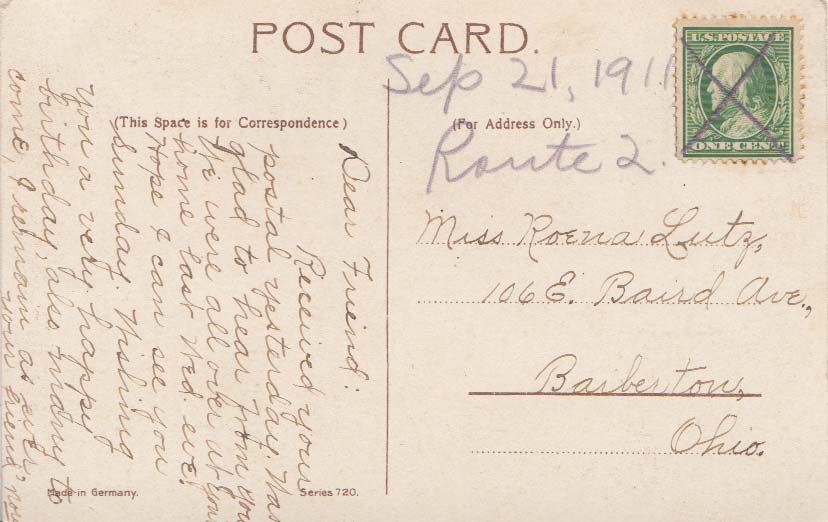 POST CARD.
U.S. POSTAGE
ONE CENT
Sep 21, 1911
Route 2.
(This Space is for Correspondence)
(For Address Only.)
Dear Friend:
Received your
postal yesterday. Was
glad to hear from you
We were all over at your
home last Wed. eve.
Hope I can see you
Sunday. Wishing
you a very happy
birthday, also many to
come, I remain as ever,
your friend,
Miss Roena Lutz,
106 E. Baird Ave.,
Barberton,
Ohio.
Made in Germany.
Series 720.